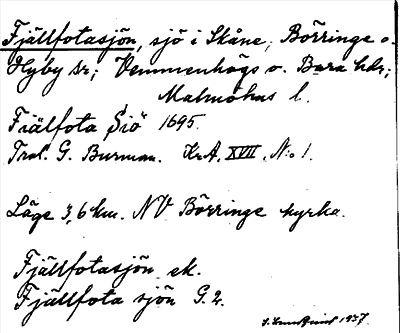 Fjällfotasjön, sjö i Skåne; Börringe o.
Hyby sr; Vemmenhögs o. Bara hdr;
Malmöhus l.
Fiälfota Siö 1695.
Trol. G. Burman. Kr.A, XVII, N:o 1.
Läge 3,6 km. NV Börringe kyrka.
Fjällfotasjön ek.
Fjällfota sjön G.2.
1937.